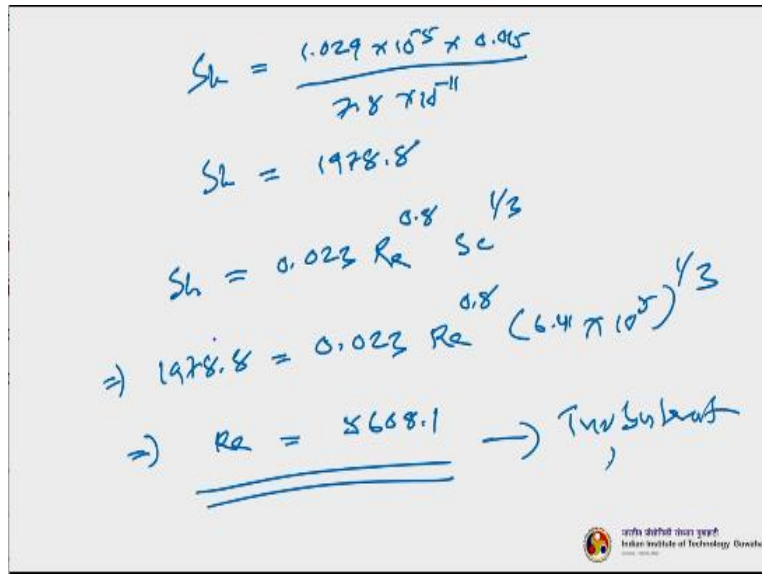 Sh = 1.029 × 10⁻⁵ × 0.015 / 7.8 × 10⁻¹¹
Sh = 1978.8
Sh = 0.023 Re^0.8 Sc^1/3
⇒ 1978.8 = 0.023 Re^0.8 (6.41 × 10⁵)^1/3
⇒ Re = 5608.1 → Turbulent
भारतीय प्रौद्योगिकी संस्थान गुवाहाटी
Indian Institute of Technology Guwahati